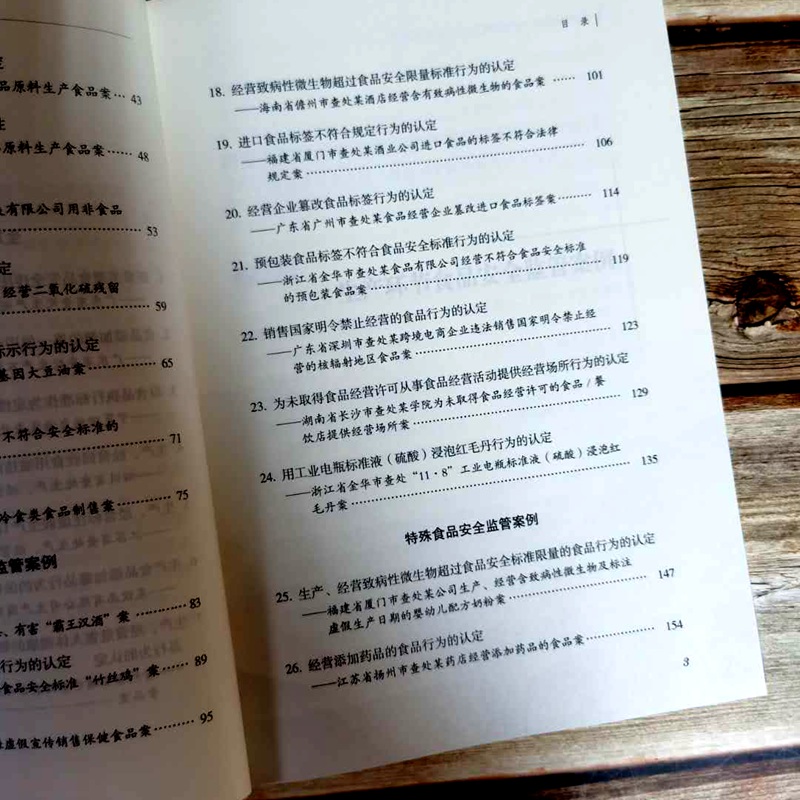 定
品原料生产食品案… 43
性
原料生产食品案…… 48
有限公司用非食品
53
定
经营二氧化硫残留
59
标示行为的认定
基因大豆油案………… 65
不符合安全标准的
71
冷食类食品制售案………… 75
监管案例
、有害“霸王汉酒”案……… 83
行为的认定
食品安全标准“竹丝鸡”案…… 89
虚假宣传销售保健食品案……… 95
目 录
18. 经营致病性微生物超过食品安全限量标准行为的认定
——海南省儋州市查处某酒店经营含有致病性微生物的食品案 …… 101
19. 进口食品标签不符合规定行为的认定
——福建省厦门市查处某酒业公司进口食品的标签不符合法律
规定案……………………………………………… 106
20. 经营企业篡改食品标签行为的认定
——广东省广州市查处某食品经营企业篡改进口食品标签案……… 114
21. 预包装食品标签不符合食品安全标准行为的认定
——浙江省金华市查处某食品有限公司经营不符合食品安全标准
的预包装食品案…………………………………… 119
22. 销售国家明令禁止经营的食品行为的认定
——广东省深圳市查处某跨境电商企业违法销售国家明令禁止经
营的核辐射地区食品案…………………………… 123
23. 为未取得食品经营许可从事食品经营活动提供经营场所行为的认定
——湖南省长沙市查处某学院为未取得食品经营许可的食品/餐
饮店提供经营场所案……………………………… 129
24. 用工业电瓶标准液（硫酸）浸泡红毛丹行为的认定
——浙江省金华市查处“11·8”工业电瓶标准液（硫酸）浸泡红
毛丹案……………………………………………… 135
特殊食品安全监管案例
25. 生产、经营致病性微生物超过食品安全标准限量的食品行为的认定
——福建省厦门市查处某公司生产、经营含致病性微生物及标注
虚假生产日期的婴幼儿配方奶粉案……………… 147
26. 经营添加药品的食品行为的认定
——江苏省扬州市查处某药店经营添加药品的食品案…………… 154
3